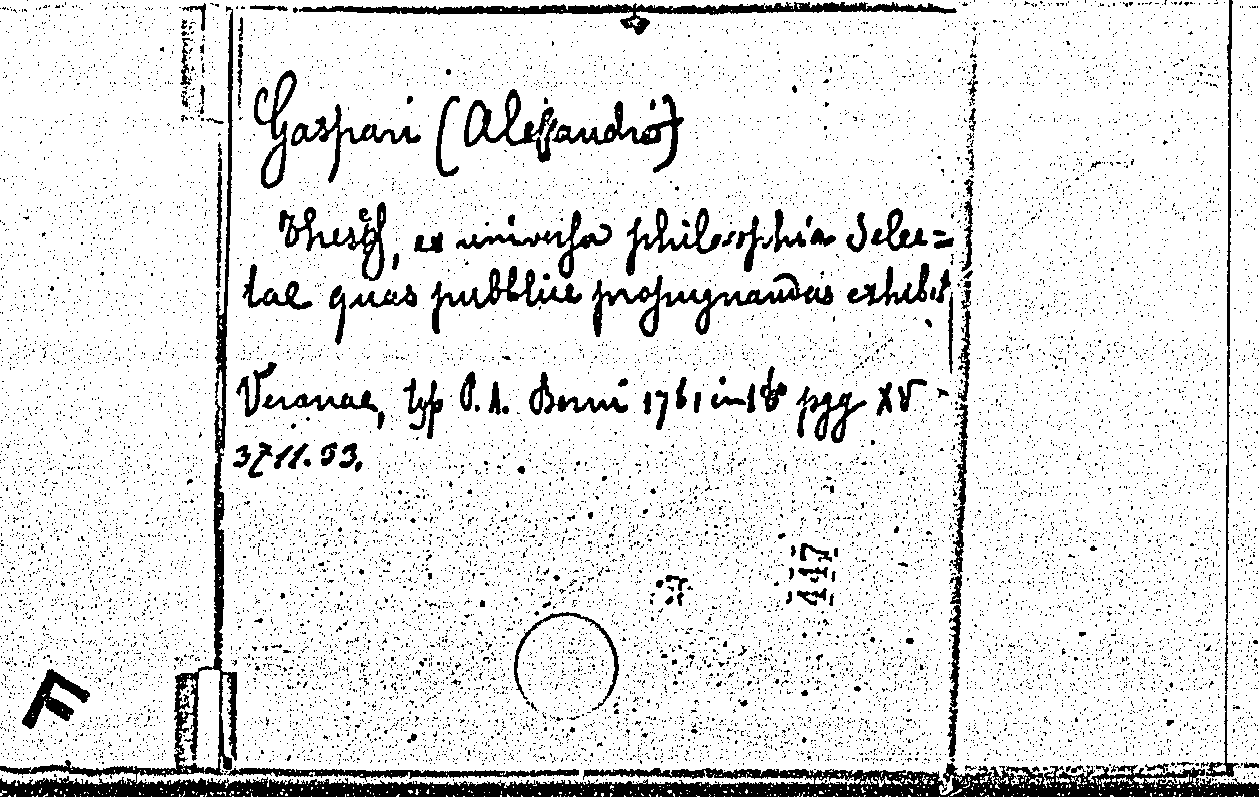 Gaspari (Alessandro)
Theses, ex universa philosophia selec=
tae quas pubblice propugnandas exhibit
Veronae, typ P. A. Berni 1761 in 18° pgg XV
3711.53.
447
F